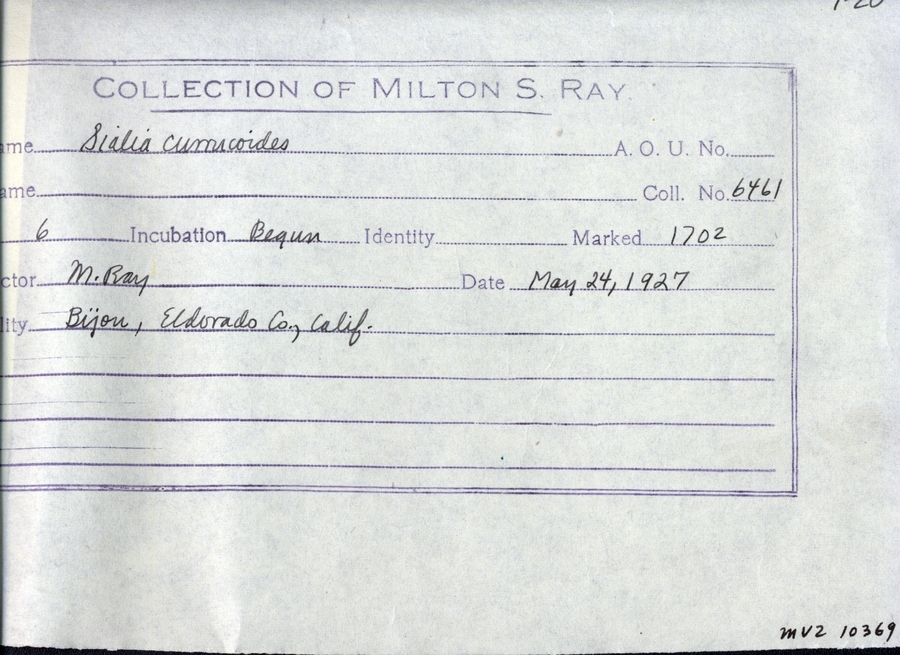 1-20
COLLECTION OF MILTON S. RAY.
ame Sialia currucoides A. O. U. No.
ame Coll. No. 6461
6 Incubation Begun Identity Marked 1702
ctor M. Ray Date May 24, 1927
lity Bijou, Eldorado Co., Calif.
MVZ 10369